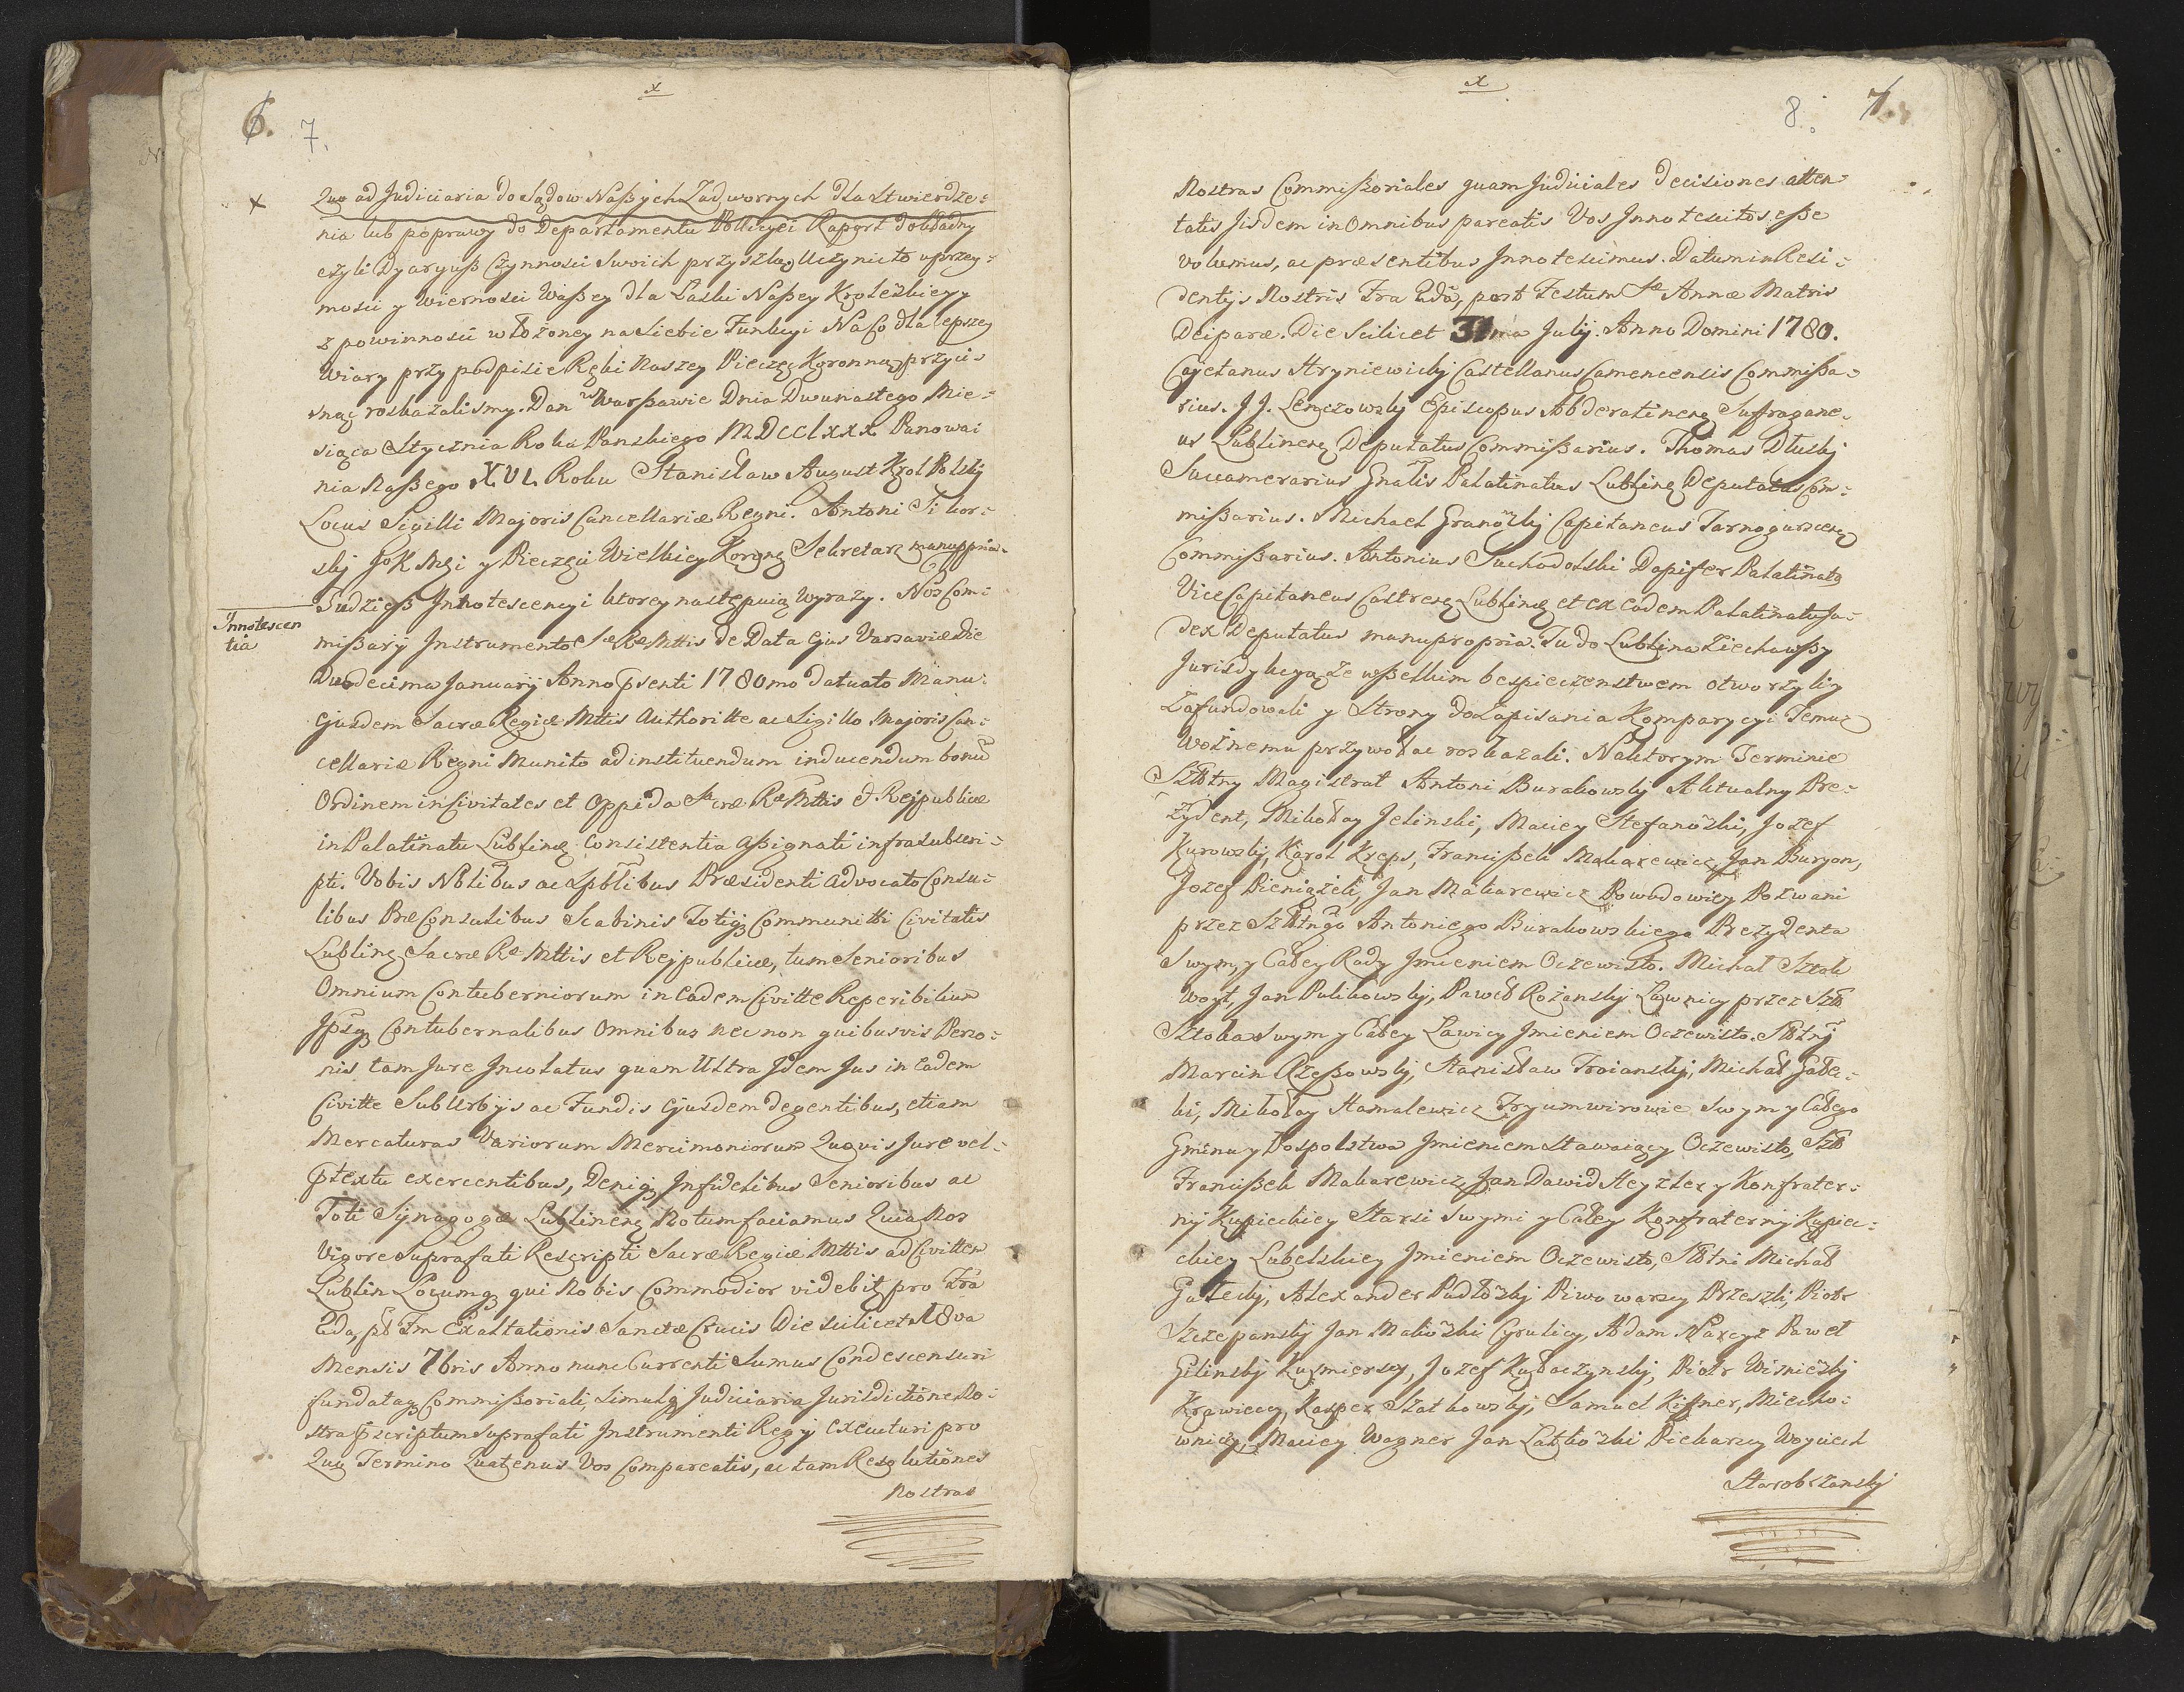 x
6. 7.
x Quo ad Judiciaria do Sądow Naßych Zadwornych dla Stwierdze=
nia lub poprawy do Departamentu Pollicyei Raport dokładny
czyli Dyaryuß Czynnosci Swoich przyszlą Uczynicto uprzey=
mosci y Wiernosci Waßey dla Łaski Naßey Krolewskiey y
z powinnosci włożoney na Siebie Funkcyi Naco dla lepszey
Wiary przy podpisie Ręki Naszey Pieczęc Koronną przyci=
snąc roskazalismy. Dan w Warßawie Dnia Dwunastego Mie=
siąca Stycznia Roku Panskiego MDCClxxx Panowa=
nia Naßego XVI. Roku Stanisław August Krol Polsky
Locus Sigilli Majoris Cancellariæ Regni. Antoni Sikor=
sky JoK Msci y Pieczęci Wielkiey Koronę Sekretarz manuppria
Tudzieß Innotescencyi ktorey następuią Wyrazy. Nos Com=
Innotescen
tia
mißarÿ Instrumento Sæ Ræ Mttis de Data Ejus Varsaviæ Die
Duodecima Januarÿ Anno psenti 1780mo Datuato Manu
Ejusdem Sacræ Regiæ Mttis Authoritte ac Sigillo Majoris Can=
cellariæ Regni Munito ad instituendum inducendum bonũ
Ordinem in Civitates et Oppida Scræ Ræ Mttis et Reipublicæ
in Palatinatu Lublinę Consistentia Aßignati infrasubscri=
pti. Vobis Nblibus ac Spblibus Præsidenti Advocato Consu=
libus Præ Consulibus Scabinis Totiq Communitti Civitatis
Lublinę Sacræ Ræ Mttis et Rejpublicæ, tum Senioribus
Omnium Contuberniorum in Eadem Civitte Reperibilium
Ipsq Contubernalibus Omnibus nec non quibusvis Perso=
nis tam Jure Incolatus quam Ultra Idem Jus in Eadem
Civitte Sub Urbÿs ac Fundis Ejusdem degentibus, etiam
Mercaturas Variorum Mercimoniorum Quovis Jure vel=
ptextu exercentibus, Deniq Infidelibus Senioribus ac
Toti Sÿnagogæ Lublinensę Notum faciamus Quia Nos
Vigore Suprafati Rescripti Sacræ Regiæ Mttis ad Civitten
Lublin Locumq qui Nobis Commodior videbit pro Fra
2da, pt Fm Exaltationis Sanctæ Crucis Die scilicet 18va
Mensis 7bris Anno nunc Currenti Sumus Condescensuri
fundataq Commißoriali, Simulq Judiciaria Jurisdictione No=
stra pscriptum Suprafati Instrumenti Regÿ Executuri pro
Quo Termino Quatenus Vos Compareatis, ac tam Resolutiones
Nostras
x
8. 7.
Nostras Commißoriales quam Judiciales Decisiones atten=
tatis Jisdem in Omnibus pareatis Vos Innotescitos eße
volumus, ac præsentibus Innotescimus. Datum in Resi=
dentÿs Nostris Fra 2da, post Festum Sæ Annæ Matris
Deiparæ. Die Scilicet 31ma Julÿ. Anno Domini 1780.
Cajetanus Hryniewicky Castellanus Camenecensis Commißa=
rius. J J. Lenczowsky Episcopus Abderatinensę Suffragane=
us Lublinensę Deputatus Commißarius. Thomas Dlusky
Succamerarius Gnalis Palatinatus Lublinę Deputatus Com=
mißarius. Michael Granowsky Capitaneus Tarnogurscensę
Commißarius. Antonius Suchodolski Dapifer Palatinatq
Vice Capitaneus Castrensę Lublinę et ex Eadem Palatinatu Ju=
dex Deputatus manupropria. Tu do Lublina Ziechawßy
Jurisdykcyą ze wßelkim bespieczenstwem otworzyliy
Zafundowali y Strony do Zapisania Komparycyi Temuż
Woźnemu przywołac roskazali. Naktorym Terminie
Szltny Magistrat Antoni Burakowsky Aktualny Pre=
zydent, Mikołay Jelinski, Maciey Stefanowski, Jozef
Kurowsky, Karol Kreps, Francißek Makarewicz, Jan Buryon,
Jozef Pieniążek, Jan Makarewicz Powodowicy Pozwani
przez Szltngo Antoniego Burakowskiego Prezydenta
Swym, y Całey Rady Jmieniem Oczewisto. Michał Sztok
Woyt, Jan Pulikowsky, Paweł Rożansky Ławnicy przez Szlt
Sztoka Swym y Całey Ławicy Jmieniem Oczewisto. Sltnj
Marcin Rzeßowsky, Stanisław Troiansky, Michał Gałec=
ki, Mikołay Hamalewicz Tryumwirowie Swym y Całego
Gminu y Pospolstwa Jmieniem Stawaiący Oczewisto, Szlt
Francißek Makarewicz, Jan Dawid Heyzler y Konfrater=
nÿ Kupieckiey Starsi Swymi y Całey Konfraternÿ Kupiec=
ckiey Lubelskiey Jmieniem Oczewisto, Sltni Michał
Gałecky, Alexander Padłowsky Piwowarscy Przeszli, Piotr
Szczepansky Jan Makowski Cyrulicy, Adam Narcyz Paweł
Gilinsky Kuśmierscy, Jozef Kułaczynsky, Piotr Wisniewsky
Krawieccy, Kasper Szatkowsky, Samuel Kißner, Miecho=
wnicy, Maciey Wagner Jan Latkowski Piekarscy Woyciech
Starobrzansky